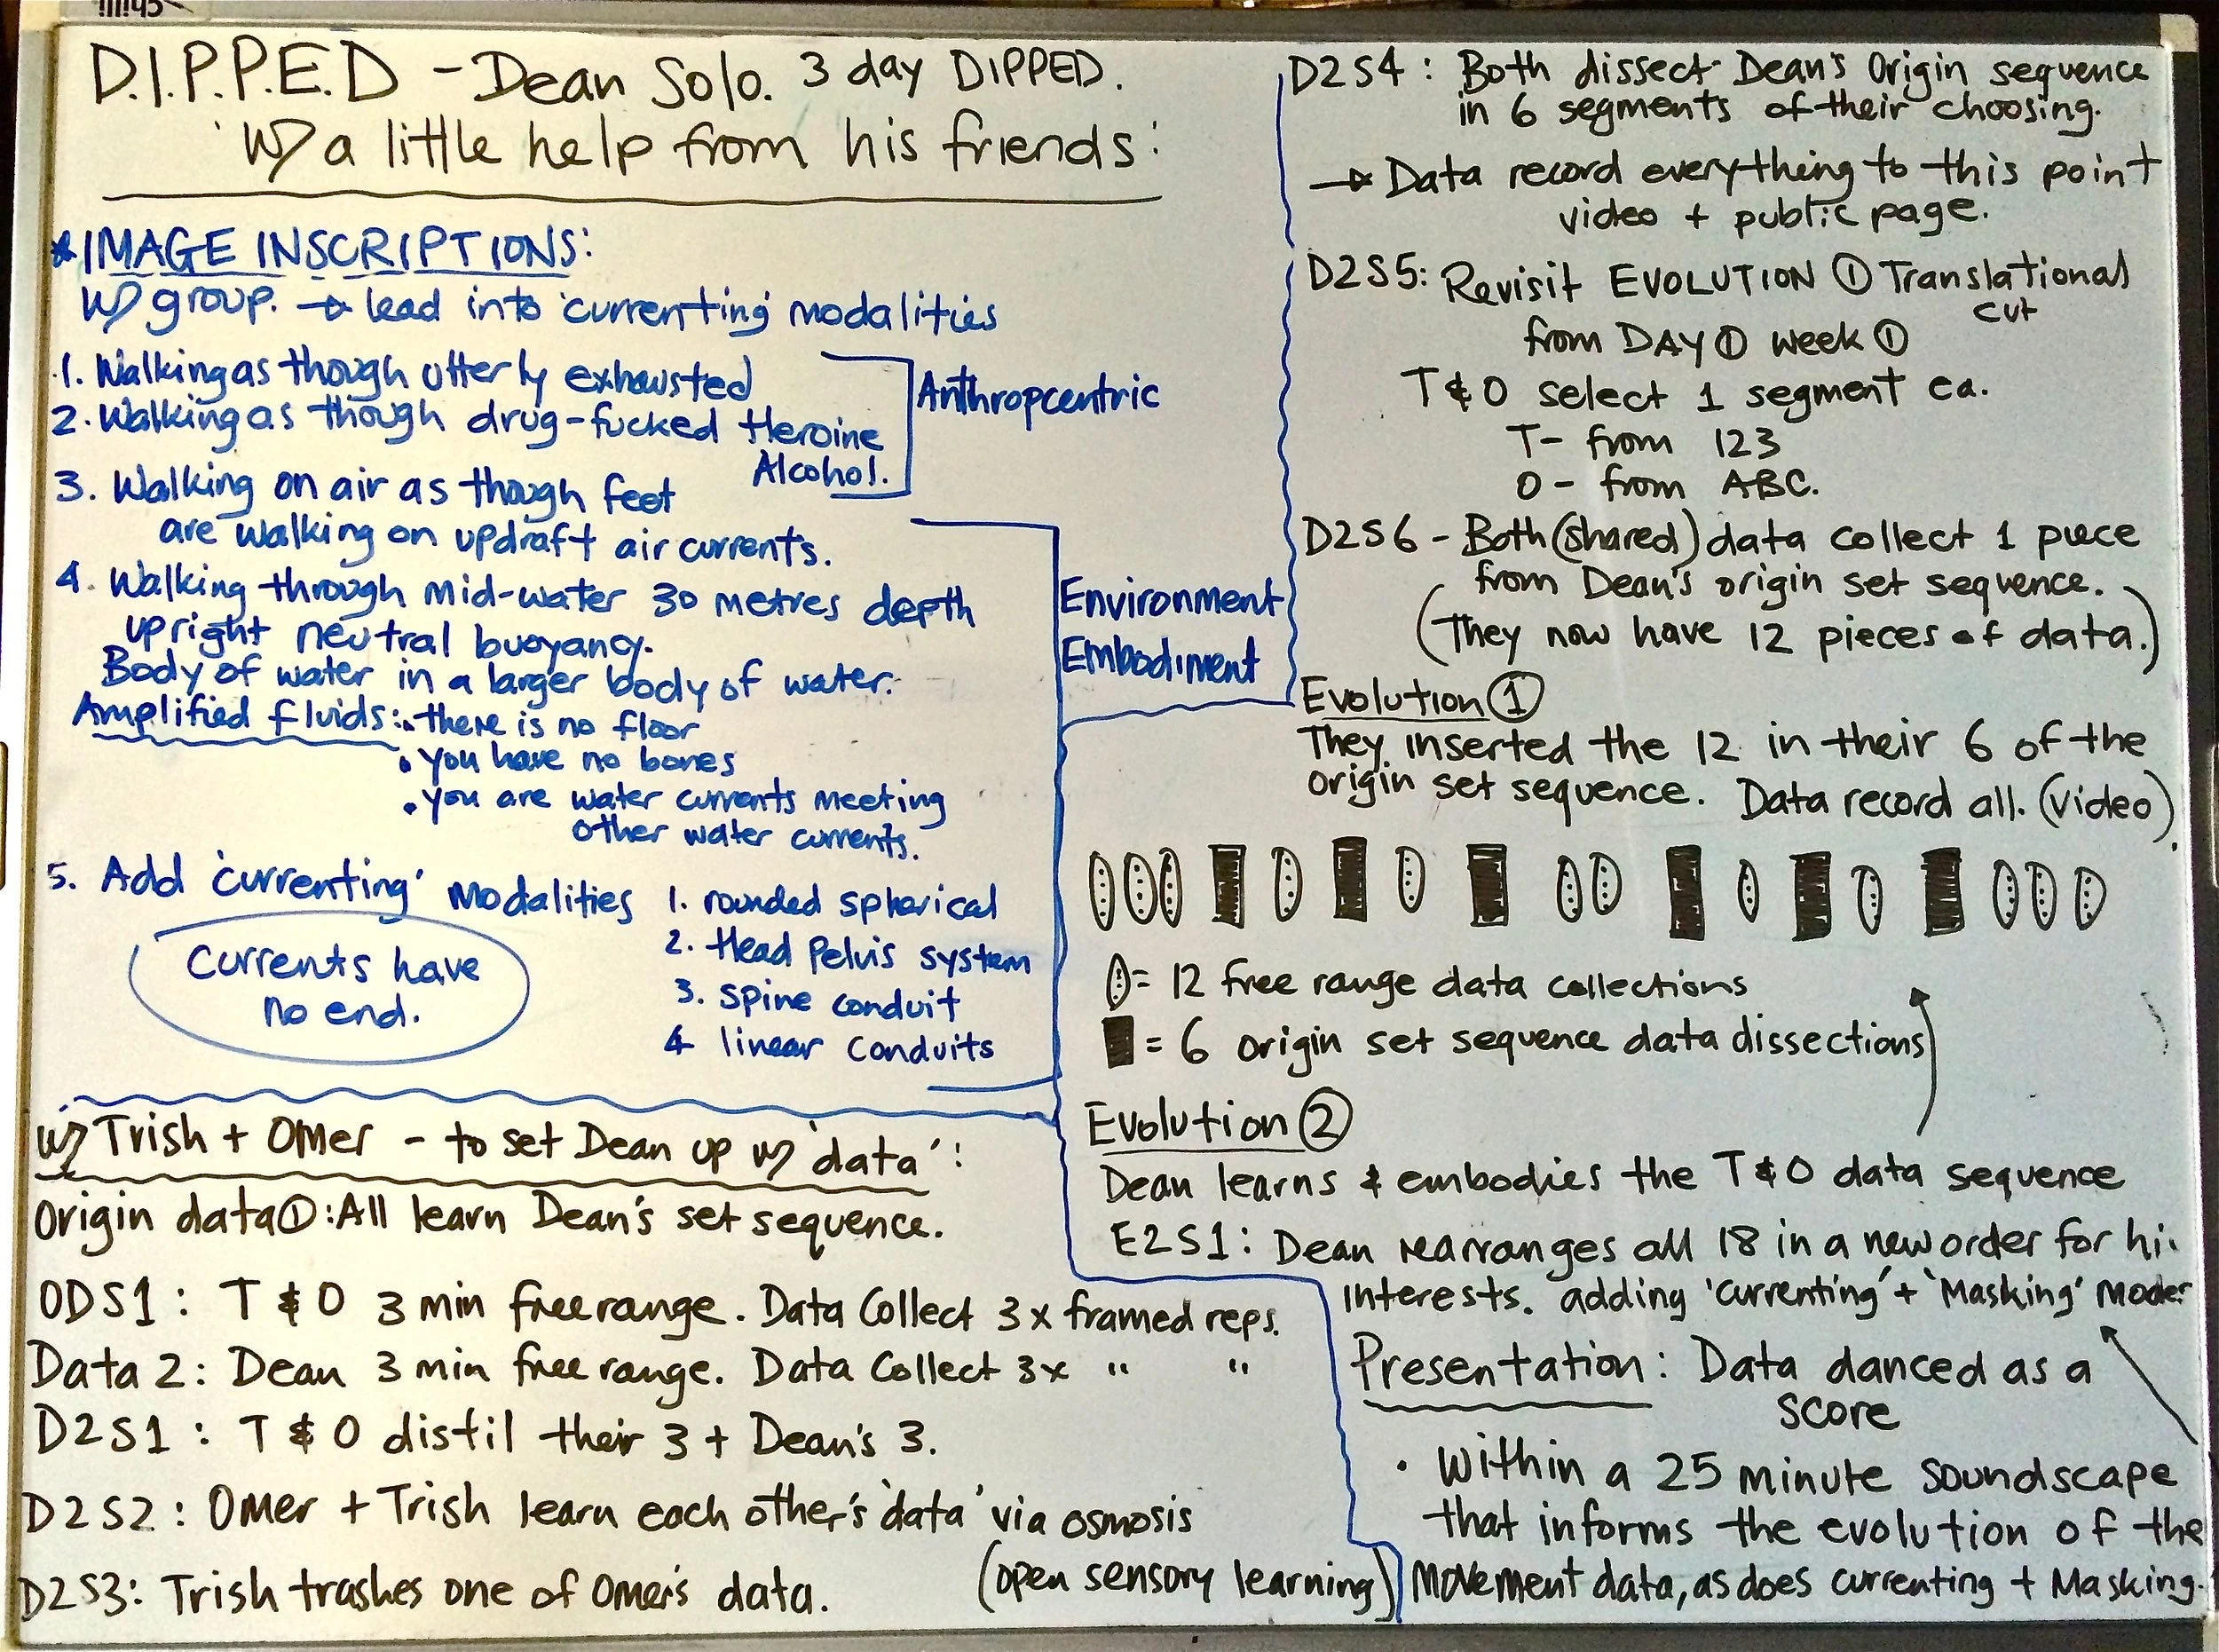 D.I.P.P.E.D - Dean Solo. 3 day DIPPED.
W/ a little help from his friends:
*IMAGE INSCRIPTIONS:
W/ group. → lead into 'currenting' modalities
1. Walking as though utterly exhausted
2. Walking as though drug-fucked Heroine
Alcohol.
Anthropcentric
3. Walking on air as though feet
are walking on updraft air currents.
4. Walking through mid-water 30 metres depth
upright neutral buoyancy.
Body of water in a larger body of water.
Amplified fluids: • there is no floor
• you have no bones
• you are water currents meeting
other water currents.
Environment
Embodiment
5. Add 'currenting' Modalities
1. rounded spherical
2. Head Pelvis system
3. spine conduit
4 linear conduits
Currents have
no end.
w/ Trish + Omer - to set Dean up w/ 'data':
Origin data①: All learn Dean's set sequence.
ODS1: T & O 3 min free range. Data Collect 3x framed reps.
Data 2: Dean 3 min free range. Data Collect 3x " "
D2S1: T & O distil their 3 + Dean's 3.
D2S2: Omer + Trish learn each other's 'data' via osmosis
(open sensory learning)
D2S3: Trish trashes one of Omer's data.
D2S4: Both dissect Dean's Origin sequence
in 6 segments of their choosing.
→ Data record everything to this point
video + public page.
D2S5: Revisit EVOLUTION ① Translational
cut
from DAY ① week ①
T & O select 1 segment ea.
T- from 123
O - from ABC.
D2S6 - Both (shared) data collect 1 piece
from Dean's origin set sequence.
(They now have 12 pieces of data.)
Evolution ①
They inserted the 12 in their 6 of the
origin set sequence. Data record all. (video).
= 12 free range data collections
= 6 origin set sequence data dissections
Evolution ②
Dean learns & embodies the T & O data sequence
E2S1: Dean rearranges all 18 in a new order for
interests. adding 'currenting' + 'Masking' modes
Presentation: Data danced as a
score
• Within a 25 minute soundscape
that informs the evolution of the
movement data, as does currenting + Masking.